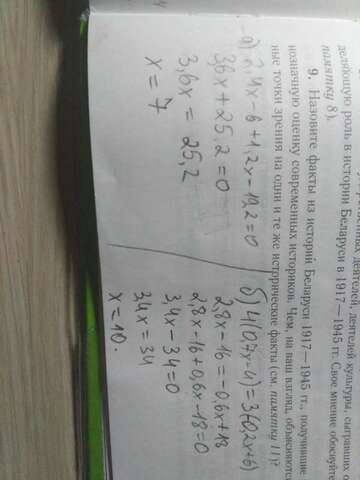 деляющую роль в истории Беларуси в 1917—1945 гг. Свое мнение обоснуйте
памятку 8).
9. Назовите факты из истории Беларуси 1917—1945 гг., получившие
нозначную оценку современных историков. Чем, на ваш взгляд, объясняются
ные точки зрения на одни и те же исторические факты (см. памятку 11)?
а) 2,4x-6+1,2x-19,2=0
3,6x+25.2=0
3,6x = 25,2
x = 7
б) 4(0,7x-4)=3(-0,2x+6)
2,8x-16=-0,6x+18
2,8x-16+0,6x-18=0
3,4x-34=0
3,4x=34
x=10.